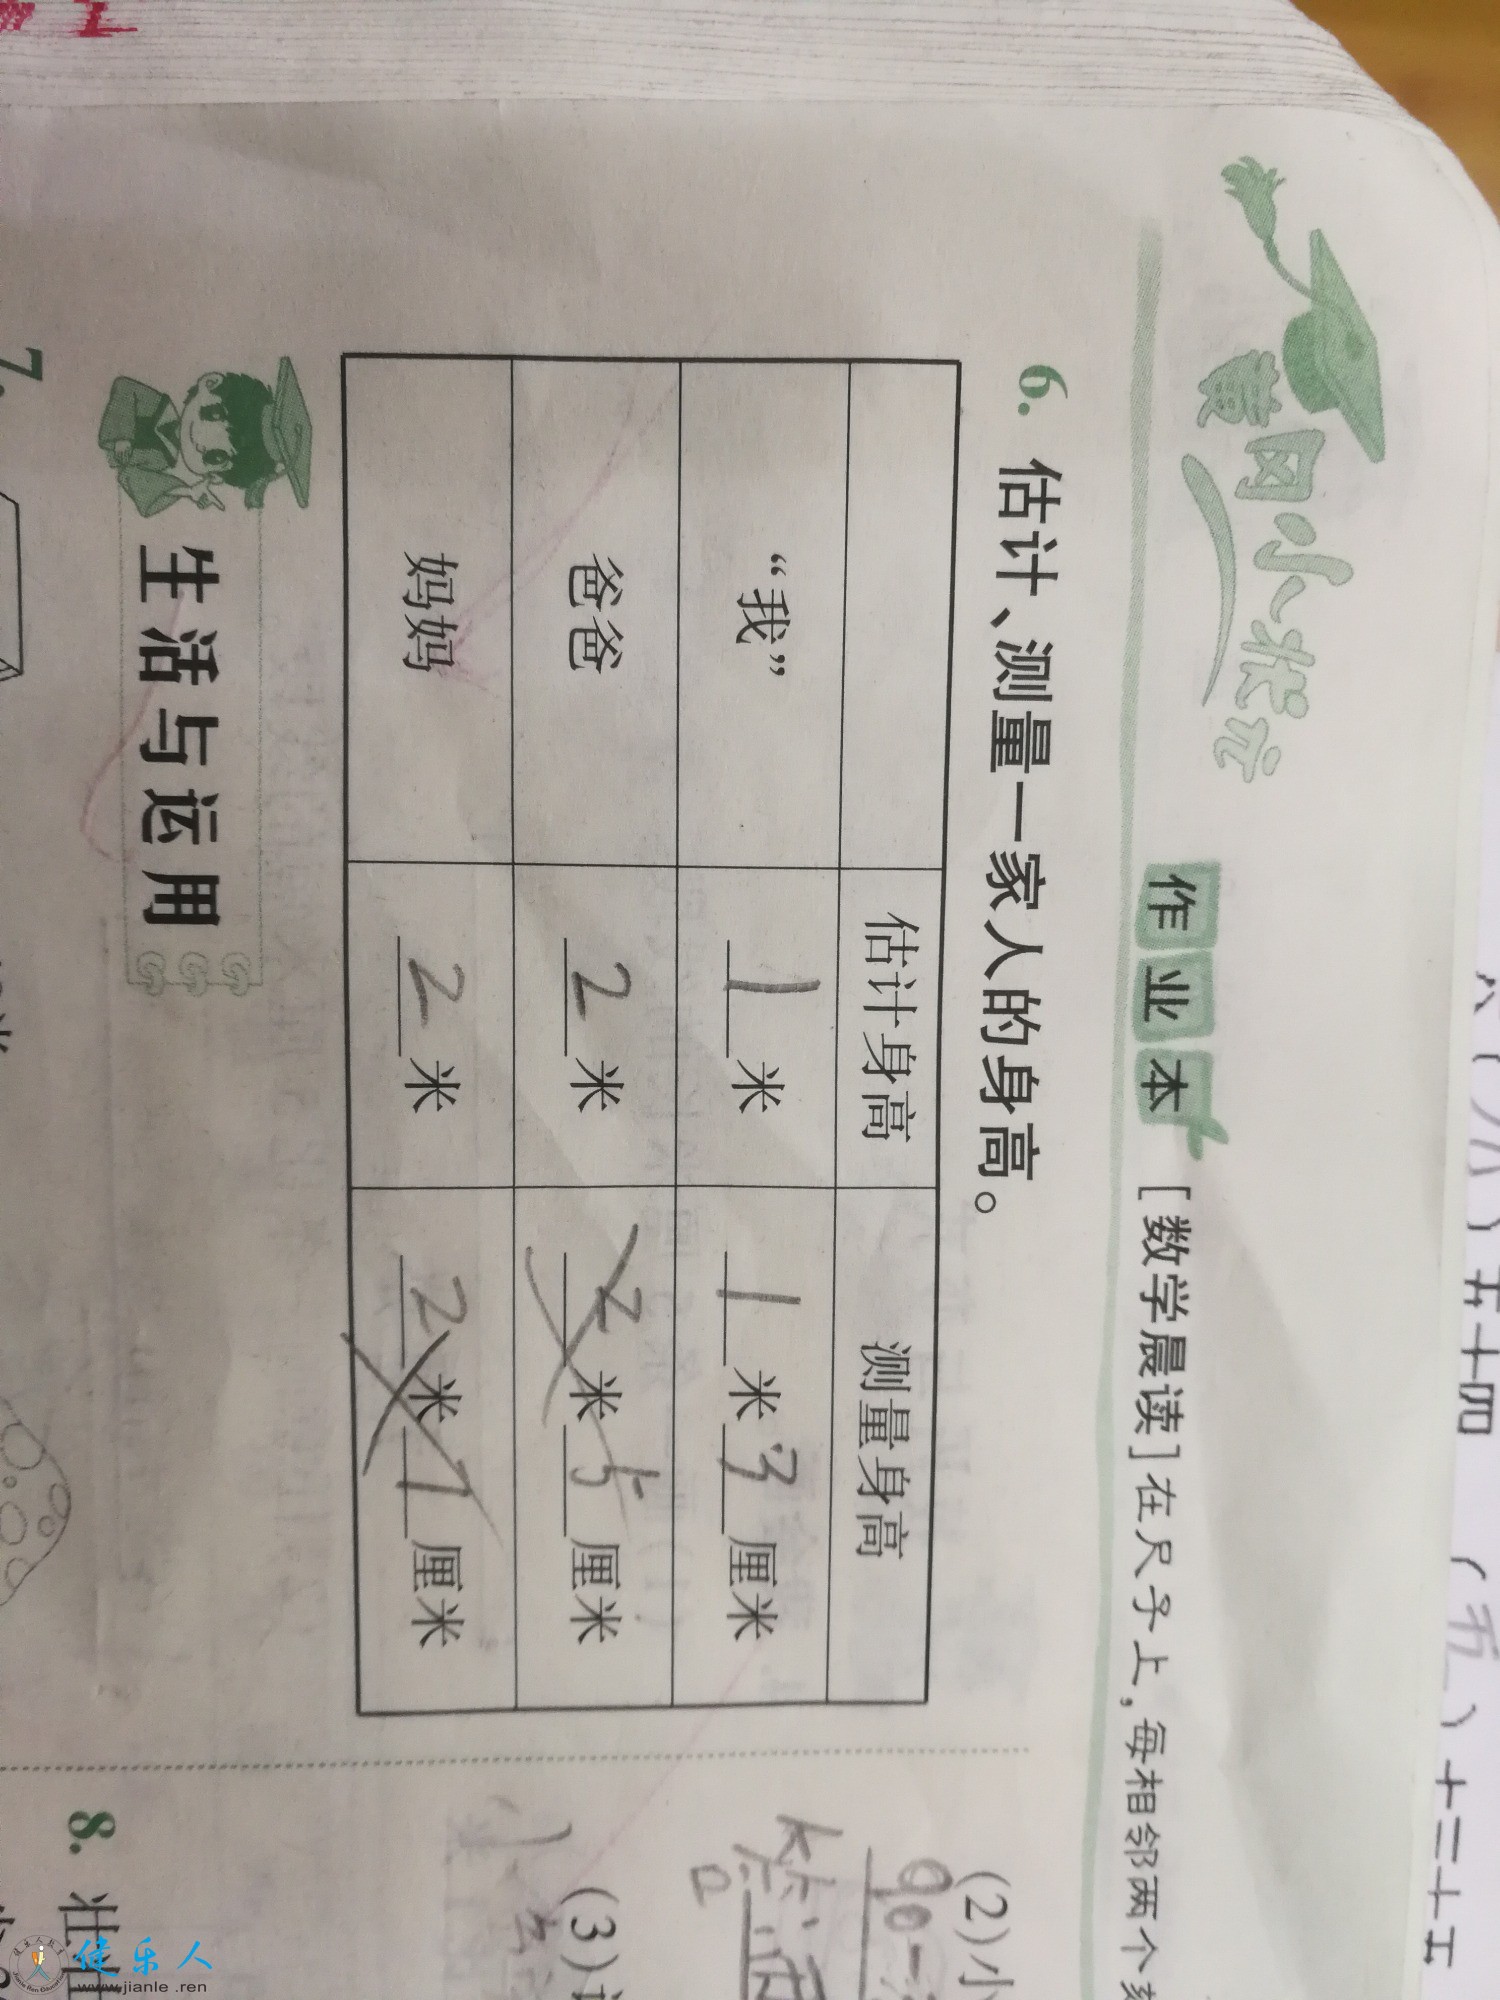 黄冈小状元
作业本 [数学晨读]在尺子上,每相邻两个
6. 估计、测量一家人的身高。
估计身高 测量身高
“我” 1米 1米3厘米
爸爸 2米 2米5厘米
妈妈 2米 2米1厘米
生活与运用
7.
(2)小
90-
答:
(3)
8. 壮
五十四
(五)十三十五
健乐人
www.jianle.ren